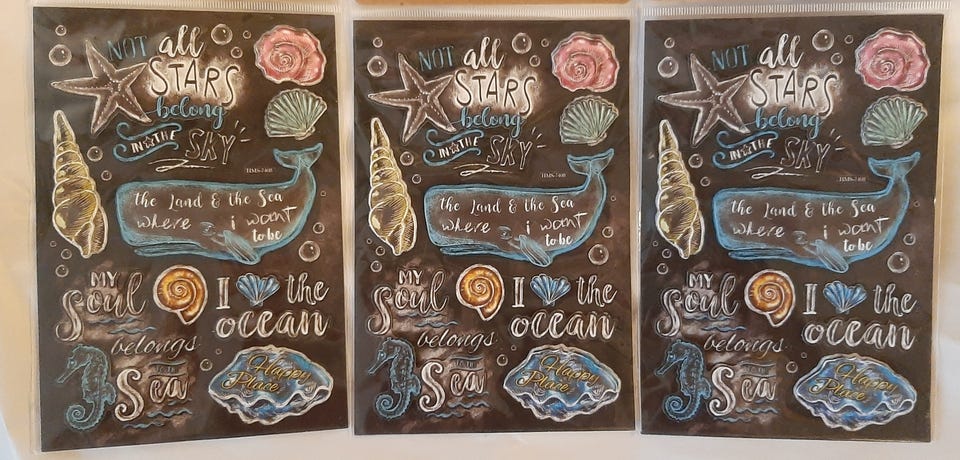 NOT all
STARS
belong
IN THE
SKY
the Land & the Sea
where i want
to be
MY
Soul
I the
ocean
belongs
TO THE
Sea
Happy
Place
NOT all
STARS
belong
IN THE
SKY
the Land & the Sea
where i want
to be
MY
Soul
I the
ocean
belongs
TO THE
Sea
Happy
Place
NOT all
STARS
belong
IN THE
SKY
the Land & the Sea
where i want
to be
MY
Soul
I the
ocean
belongs
TO THE
Sea
Happy
Place